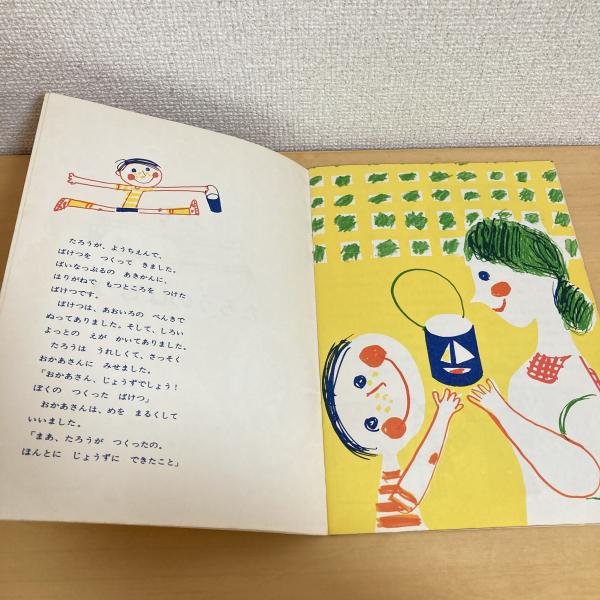 たろうが、ようちえんで、
ばけつを つくって きました。
ぱいなっぷるの あきかんに、
はりがねで もつところを つけた
ばけつです。
ばけつは、あおいろの ぺんきで
ぬってありました。そして、しろい
よっとの えが かいてありました。
たろうは うれしくて、さっそく
おかあさんに みせました。
「おかあさん、じょうずでしょう！
ぼくの つくった ばけつ」
おかあさんは、めを まるくして
いいました。
「まあ、たろうが つくったの。
ほんとに じょうずに できたこと」